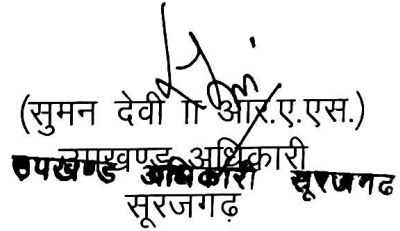 (सुमन देवी II आर.ए.एस.)
उपखण्ड अधिकारी
उपखण्ड अधिकारी सूरजगढ
सूरजगढ़